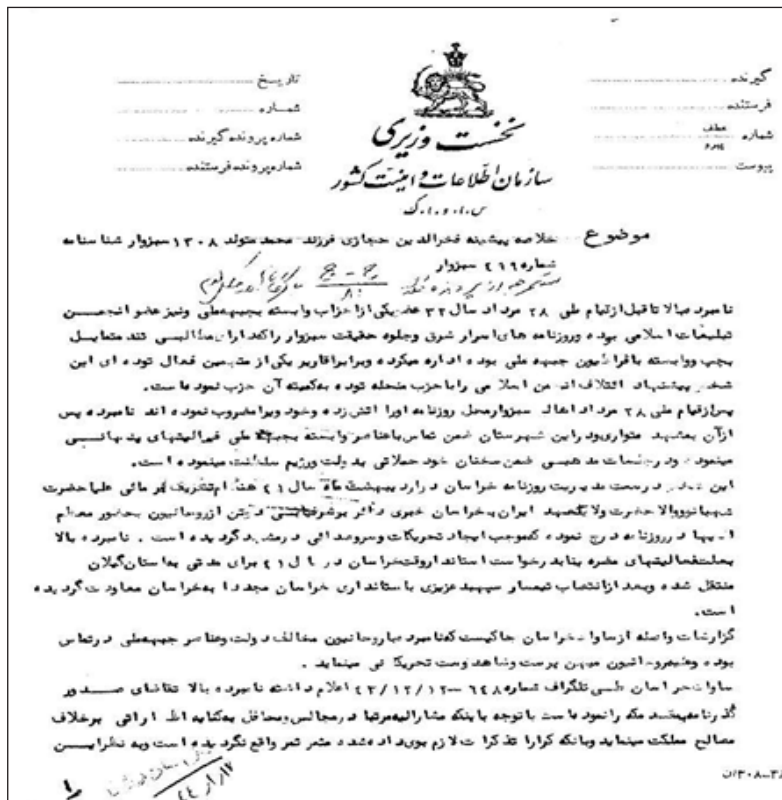 گیرنده
فرستنده
شماره
پیوست
تاریخ
شماره
شماره پرونده گیرنده
شماره پرونده فرستنده
نخست وزیری
سازمان اطلاعات و امنیت کشور
س.ا.و.ا.ک
موضوع خلاصه پیشینه فخرالدین حجازی فرزند محمد متولد ۱۳۰۸ سبزوار شناسنامه
شماره ۲۱۹ سبزوار
نامبرده بالا تا قبل از قیام ملی ۲۸ مرداد سال ۳۲ عضو یکی از احزاب وابسته بجبهه ملی و نیز عضو انجمن
تبلیغات اسلامی بوده و روزنامه های اسرار شرق و جلوه حقیقت سبزوار را که دارای مطالبی تند متمایل
بچپ و وابسته بافراطیون جبهه ملی بوده اداره میکرده و برابر اقاریر یکی از متهمین فعال توده ای این
شخص پیشنهاد ائتلاف انجمن اسلامی را با حزب منحله توده به کمیته آن حزب نموده است.
پس از قیام ملی ۲۸ مرداد اهالی سبزوار محل روزنامه او را آتش زده و خود ویرا مضروب نموده اند نامبرده پس
از آن بمشهد متواری و در این شهرستان ضمن تماس با عناصر وابسته بجبهه ملی فعالیتهای پنهانی
مینموده و در جلسات مذهبی ضمن سخنان خود حملاتی بدولت و رژیم سلطنت مینموده است.
این شخص در سمت مدیریت روزنامه خراسان در اردیبهشت ماه سال ۴۱ هنگام تشریف فرمائی علیاحضرت
شهبانو و والاحضرت ولایتعهد ایران به خراسان خبری دائر بر شرفیابی دو تن از روحانیون بحضور معظم
الیها در روزنامه درج نموده که موجب ایجاد تحریکات و سروصدائی در مشهد گردیده است . نامبرده بالا
بعلت فعالیتهای مضره بنا بدرخواست استاندار وقت خراسان در سال ۴۱ برای مدتی به استان گیلان
منتقل شده و بعد از انتصاب تیمسار سپهبد عزیزی باستانداری خراسان مجددا به خراسان معاودت گردیده
است.
گزارشات واصله از ساواک خراسان حاکیست که نامبرده با روحانیون مخالف دولت و عناصر جبهه ملی در تماس
بوده و علیه روحانیون میهن پرست و شاهدوست تحریکاتی مینماید .
ساواک خراسان طی تلگراف شماره ۶۴۸ - ۴۳/۱۲/۱۲ اعلام داشته نامبرده بالا تقاضای صدور
گذرنامه بمقصد مکه را نموده است با توجه باینکه مشارالیه مرتبا در مجالس و محافل به کنایه اظهاراتی برخلاف
مصالح مملکت مینماید و بانکه کرارا تذکرات لازم بوی داده شده مثمر ثمر واقع نگردیده است و به نظر این
۱